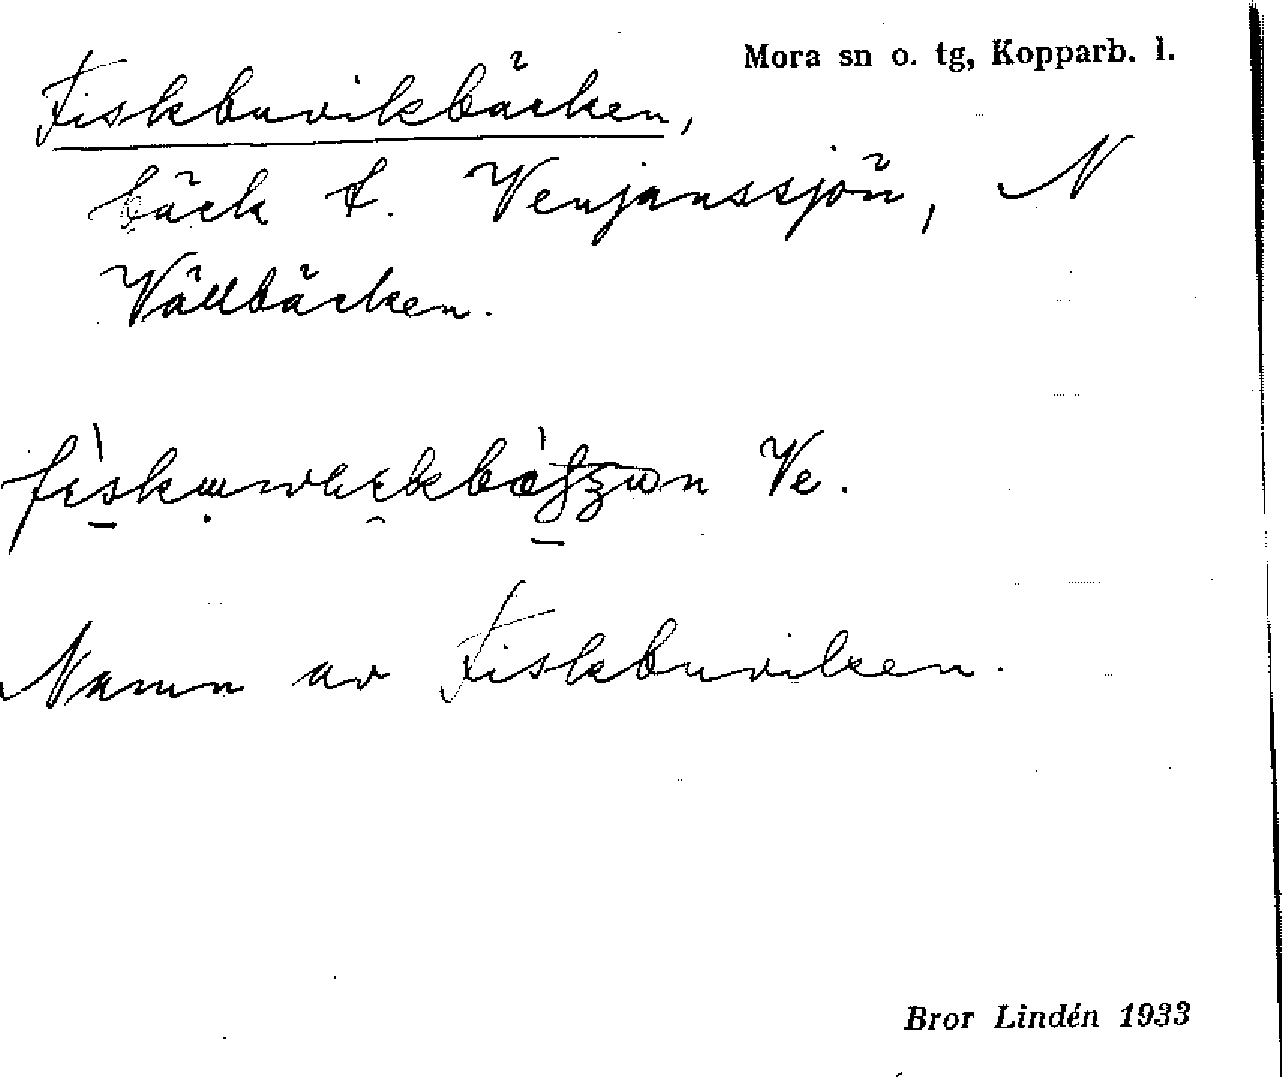 Mora sn o. tg, Kopparb. l.
Fiskbuvikbäcken,
bäck t. Venjanssjön, N
Vällbäcken.
Ve.
Namn av Fiskbuviken.
Bror Lindén 1933